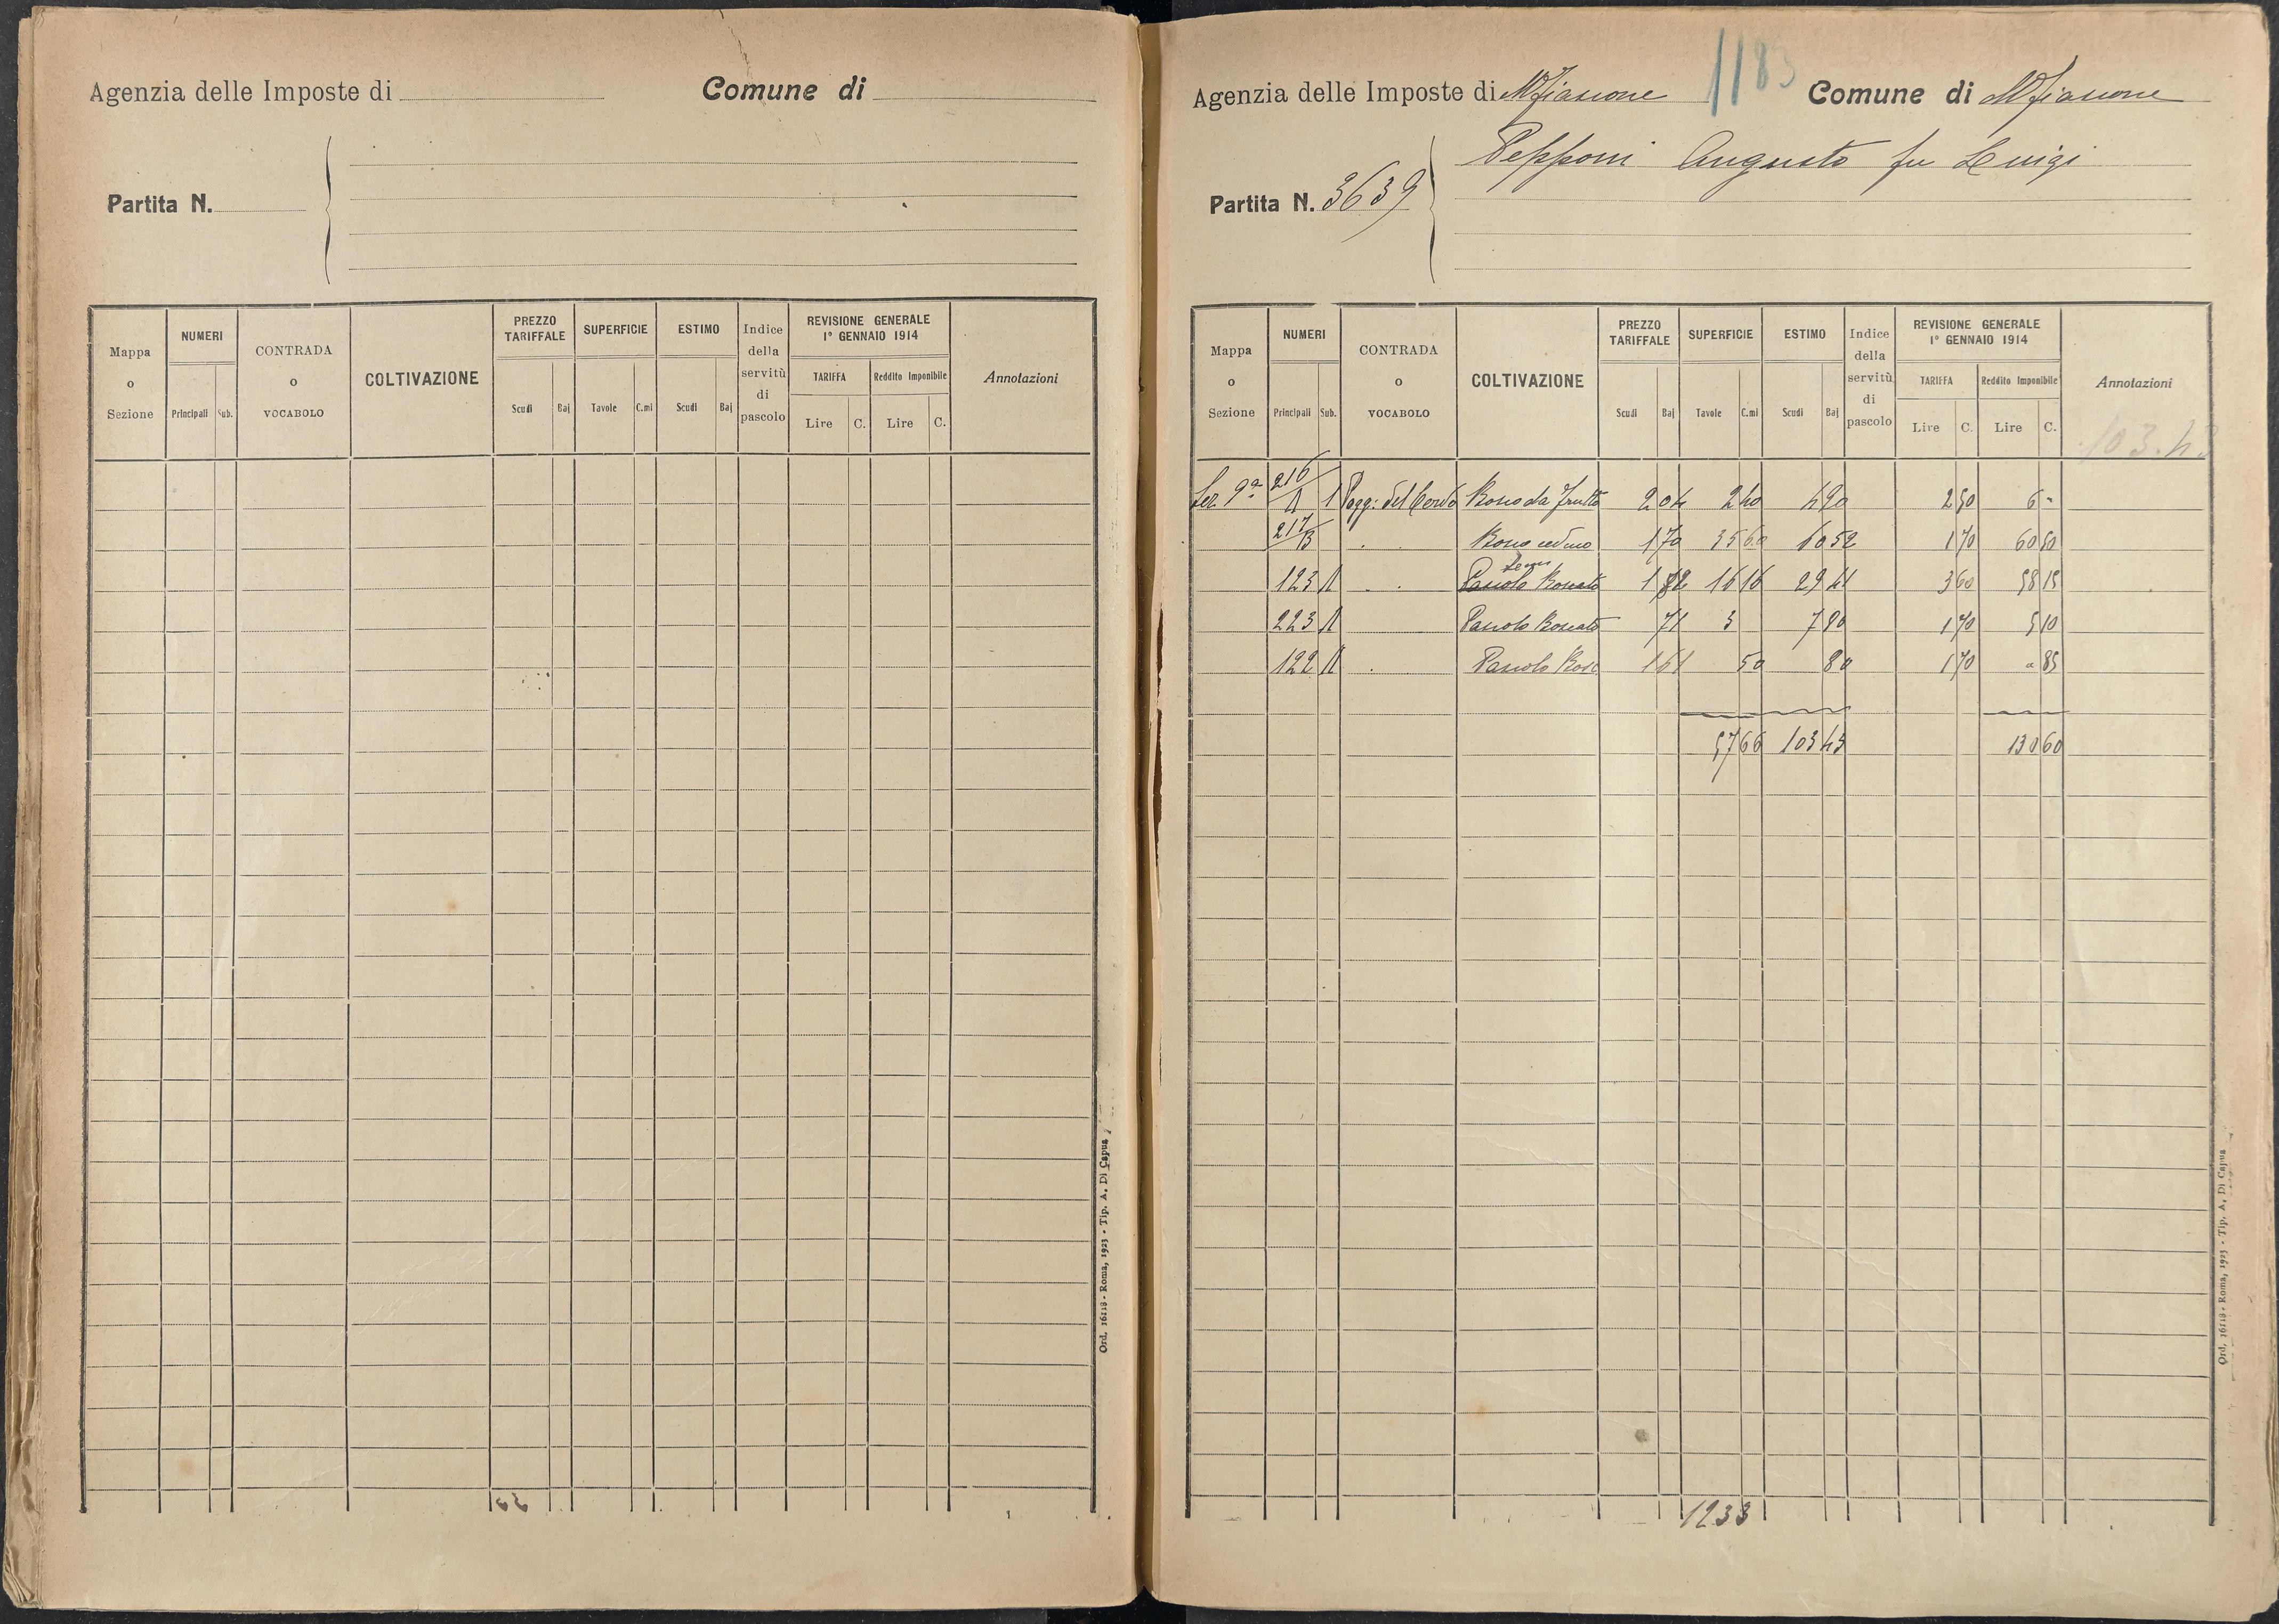 Agenzia delle Imposte di
Comune di
Partita N.
Mappa o Sezione
NUMERI
Principali
Sub.
CONTRADA o VOCABOLO
COLTIVAZIONE
PREZZO TARIFFALE
Scudi
Baj
SUPERFICIE
Tavole
C.mi
ESTIMO
Scudi
Baj
Indice della servitù di pascolo
REVISIONE GENERALE 1° GENNAIO 1914
TARIFFA
Lire
C.
Reddito Imponibile
Lire
C.
Annotazioni
Ord. 16118 - Roma, 1923 - Tip. A. Di Capua
1183
Agenzia delle Imposte di Mfiascone
Comune di Mfiascone
Partita N. 3639
Pepponi Augusto fu Luigi
Mappa o Sezione
NUMERI
Principali
Sub.
CONTRADA o VOCABOLO
COLTIVAZIONE
PREZZO TARIFFALE
Scudi
Baj
SUPERFICIE
Tavole
C.mi
ESTIMO
Scudi
Baj
Indice della servitù di pascolo
REVISIONE GENERALE 1° GENNAIO 1914
TARIFFA
Lire
C.
Reddito Imponibile
Lire
C.
Annotazioni
103.43
Sez. 9ª 216/A 1 Pogg: del Cerro Bosco da frutto 2 04 2 40 4 90 2 50 6 "
217/B Bosco ceduo 1 70 35 60 60 52 1 70 60 50
123 A Sem 1 82 16 16 29 41 3 60 58 15
223 A Pascolo Boscato 71 3 7 80 1 70 5 10
122 A Pascolo Bosc 1 61 50 80 1 70 " 85
57 66 103 43 130 60
1233
Ord. 16118 - Roma, 1923 - Tip. A. Di Capua